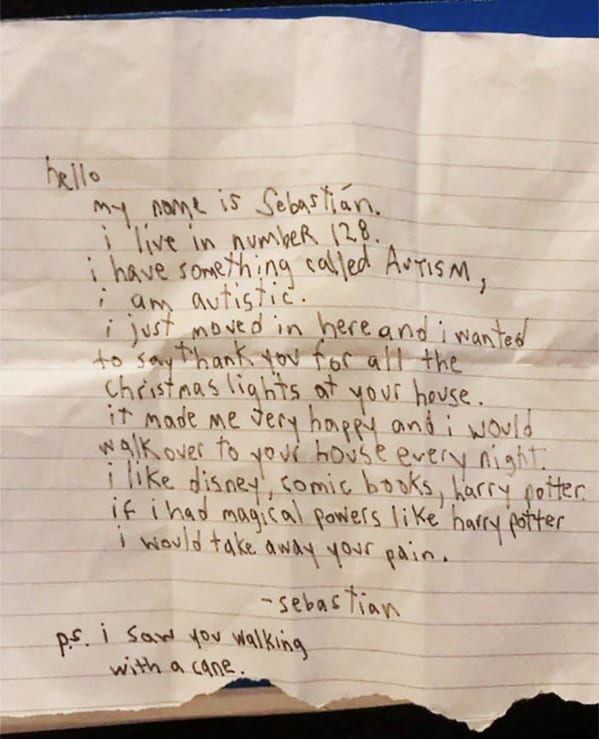 hello
my name is Sebastián.
i live in number 128.
i have something called AuTISM,
i am autistic.
i just moved in here and i wanted
to say thank you for all the
christmas lights at your house.
it made me very happy and i would
walk over to your house every night.
i like disney, comic books, harry potter.
if i had magical powers like harry potter
i would take away your pain.
-sebastian
p.s. i saw you walking
with a cane.